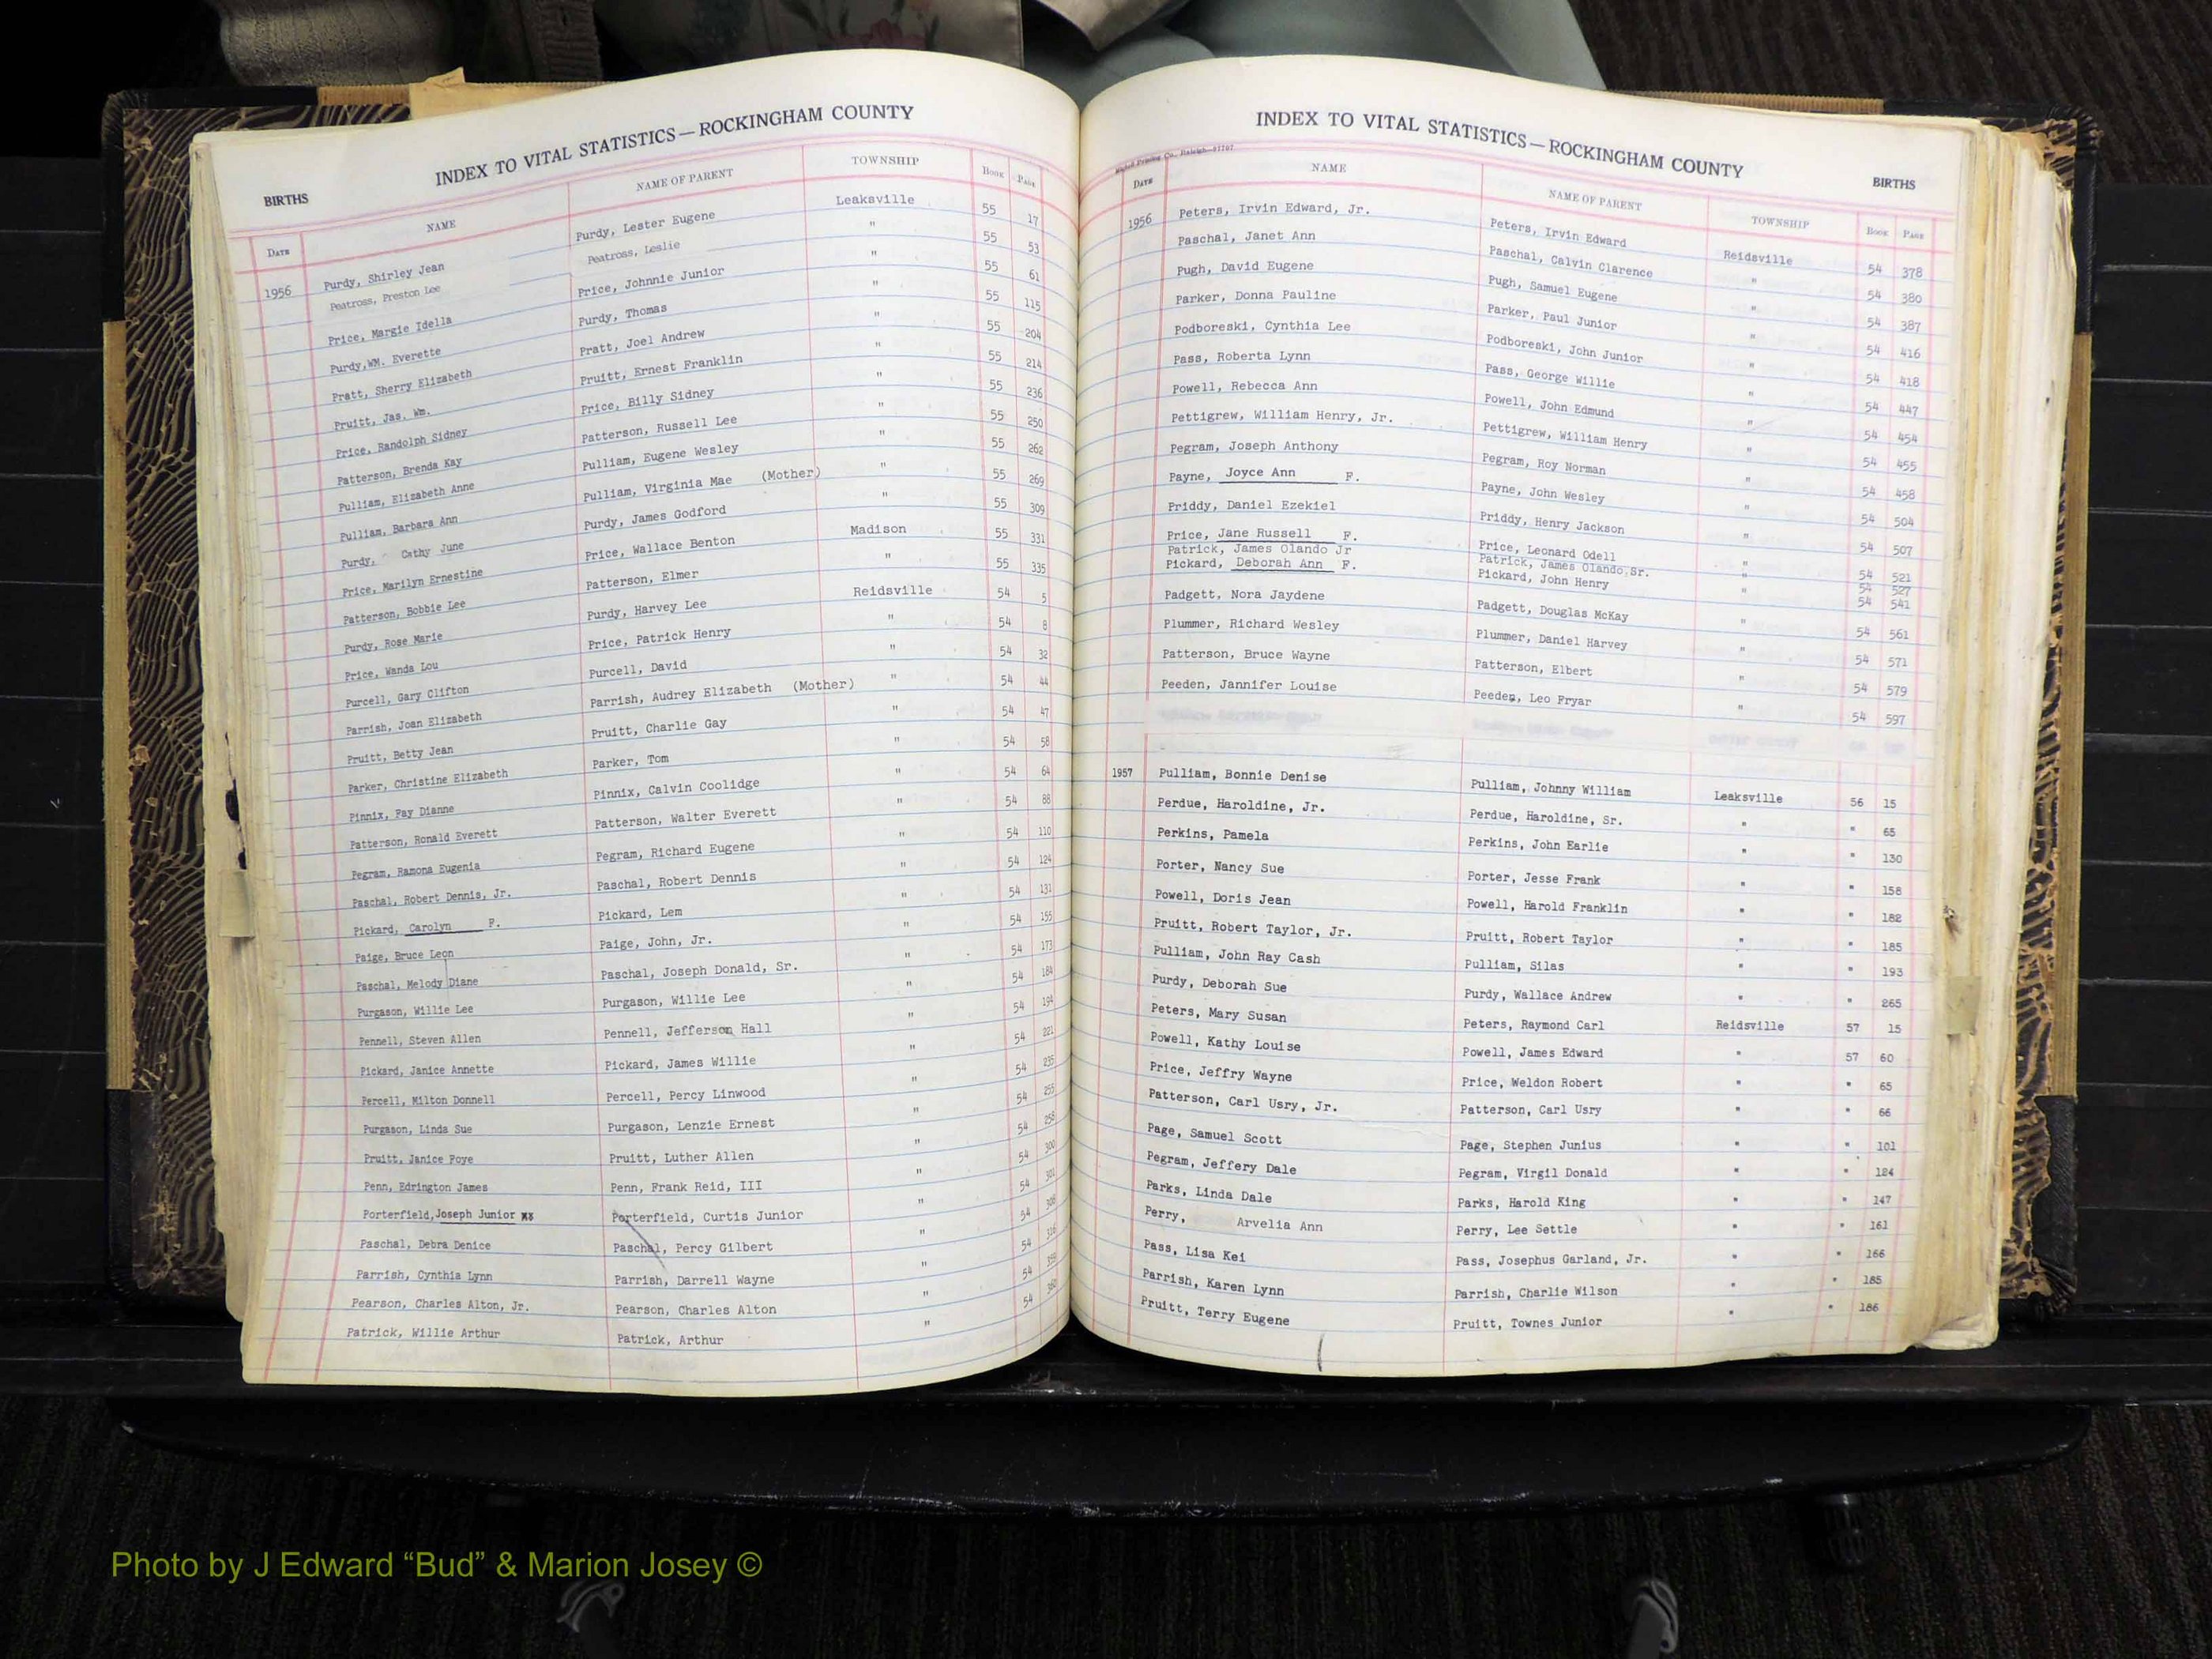 INDEX TO VITAL STATISTICS — ROCKINGHAM COUNTY
BIRTHS
DATE NAME NAME OF PARENT TOWNSHIP BOOK PAGE
1956 Purdy, Shirley Jean Purdy, Lester Eugene Leaksville 55 17
Peatross, Preston Lee Peatross, Leslie " 55 53
Price, Margie Idella Price, Johnnie Junior " 55 61
Purdy, WM. Everette Purdy, Thomas " 55 115
Pratt, Sherry Elizabeth Pratt, Joel Andrew " 55 204
Pruitt, Jas. Wm. Pruitt, Ernest Franklin " 55 214
Price, Randolph Sidney Price, Billy Sidney " 55 236
Patterson, Brenda Kay Patterson, Russell Lee " 55 250
Pulliam, Elizabeth Anne Pulliam, Eugene Wesley " 55 262
Pulliam, Barbara Ann Pulliam, Virginia Mae (Mother) " 55 269
Purdy, Cathy June Purdy, James Godford " 55 309
Price, Marilyn Ernestine Price, Wallace Benton Madison 55 331
Patterson, Bobbie Lee Patterson, Elmer " 55 335
Purdy, Rose Marie Purdy, Harvey Lee Reidsville 54 5
Price, Wanda Lou Price, Patrick Henry " 54 8
Purcell, Gary Clifton Purcell, David " 54 32
Parrish, Joan Elizabeth Parrish, Audrey Elizabeth (Mother) " 54 44
Pruitt, Betty Jean Pruitt, Charlie Gay " 54 47
Parker, Christine Elizabeth Parker, Tom " 54 58
Pinnix, Fay Dianne Pinnix, Calvin Coolidge " 54 64
Patterson, Ronald Everett Patterson, Walter Everett " 54 88
Pegram, Ramona Eugenia Pegram, Richard Eugene " 54 110
Paschal, Robert Dennis, Jr. Paschal, Robert Dennis " 54 124
Pickard, Carolyn F. Pickard, Lem " 54 131
Paige, Bruce Leon Paige, John, Jr. " 54 155
Paschal, Melody Diane Paschal, Joseph Donald, Sr. " 54 173
Purgason, Willie Lee Purgason, Willie Lee " 54 184
Pennell, Steven Allen Pennell, Jefferson Hall " 54 194
Pickard, Janice Annette Pickard, James Willie " 54 221
Percell, Milton Donnell Percell, Percy Linwood " 54 235
Purgason, Linda Sue Purgason, Lenzie Ernest " 54 255
Pruitt, Janice Foye Pruitt, Luther Allen " 54 258
Penn, Edrington James Penn, Frank Reid, III " 54 300
Porterfield, Joseph Junior Porterfield, Curtis Junior " 54 301
Paschal, Debra Denice Paschal, Percy Gilbert " 54
Parrish, Cynthia Lynn Parrish, Darrell Wayne " 54
Pearson, Charles Alton, Jr. Pearson, Charles Alton " 54
Patrick, Willie Arthur Patrick, Arthur " 54
INDEX TO VITAL STATISTICS — ROCKINGHAM COUNTY
BIRTHS
DATE NAME NAME OF PARENT TOWNSHIP BOOK PAGE
1956 Peters, Irvin Edward, Jr. Peters, Irvin Edward Reidsville 54 378
Paschal, Janet Ann Paschal, Calvin Clarence " 54 380
Pugh, David Eugene Pugh, Samuel Eugene " 54 387
Parker, Donna Pauline Parker, Paul Junior " 54 416
Podboreski, Cynthia Lee Podboreski, John Junior " 54 418
Pass, Roberta Lynn Pass, George Willie " 54 447
Powell, Rebecca Ann Powell, John Edmund " 54 454
Pettigrew, William Henry, Jr. Pettigrew, William Henry " 54 455
Pegram, Joseph Anthony Pegram, Roy Norman " 54 458
Payne, Joyce Ann F. Payne, John Wesley " 54 504
Priddy, Daniel Ezekiel Priddy, Henry Jackson " 54 507
Price, Jane Russell F. Price, Leonard Odell " 54 521
Patrick, James Olando Jr Patrick, James Olando Sr. " 54 527
Pickard, Deborah Ann F. Pickard, John Henry " 54 541
Padgett, Nora Jaydene Padgett, Douglas McKay " 54 561
Plummer, Richard Wesley Plummer, Daniel Harvey " 54 571
Patterson, Bruce Wayne Patterson, Elbert " 54 579
Peeden, Jannifer Louise Peeden, Leo Fryar " 54 597
1957 Pulliam, Bonnie Denise Pulliam, Johnny William Leaksville 56 15
Perdue, Haroldine, Jr. Perdue, Haroldine, Sr. " " 65
Perkins, Pamela Perkins, John Earlie " " 130
Porter, Nancy Sue Porter, Jesse Frank " " 158
Powell, Doris Jean Powell, Harold Franklin " " 182
Pruitt, Robert Taylor, Jr. Pruitt, Robert Taylor " " 185
Pulliam, John Ray Cash Pulliam, Silas " " 193
Purdy, Deborah Sue Purdy, Wallace Andrew " " 265
Peters, Mary Susan Peters, Raymond Carl Reidsville 57 15
Powell, Kathy Louise Powell, James Edward " 57 60
Price, Jeffry Wayne Price, Weldon Robert " " 65
Patterson, Carl Usry, Jr. Patterson, Carl Usry " " 66
Page, Samuel Scott Page, Stephen Junius " " 101
Pegram, Jeffery Dale Pegram, Virgil Donald " " 124
Parks, Linda Dale Parks, Harold King " " 147
Perry, Arvelia Ann Perry, Lee Settle " " 161
Pass, Lisa Kei Pass, Josephus Garland, Jr. " " 166
Parrish, Karen Lynn Parrish, Charlie Wilson " " 185
Pruitt, Terry Eugene Pruitt, Townes Junior " " 186
Photo by J Edward “Bud” & Marion Josey ©